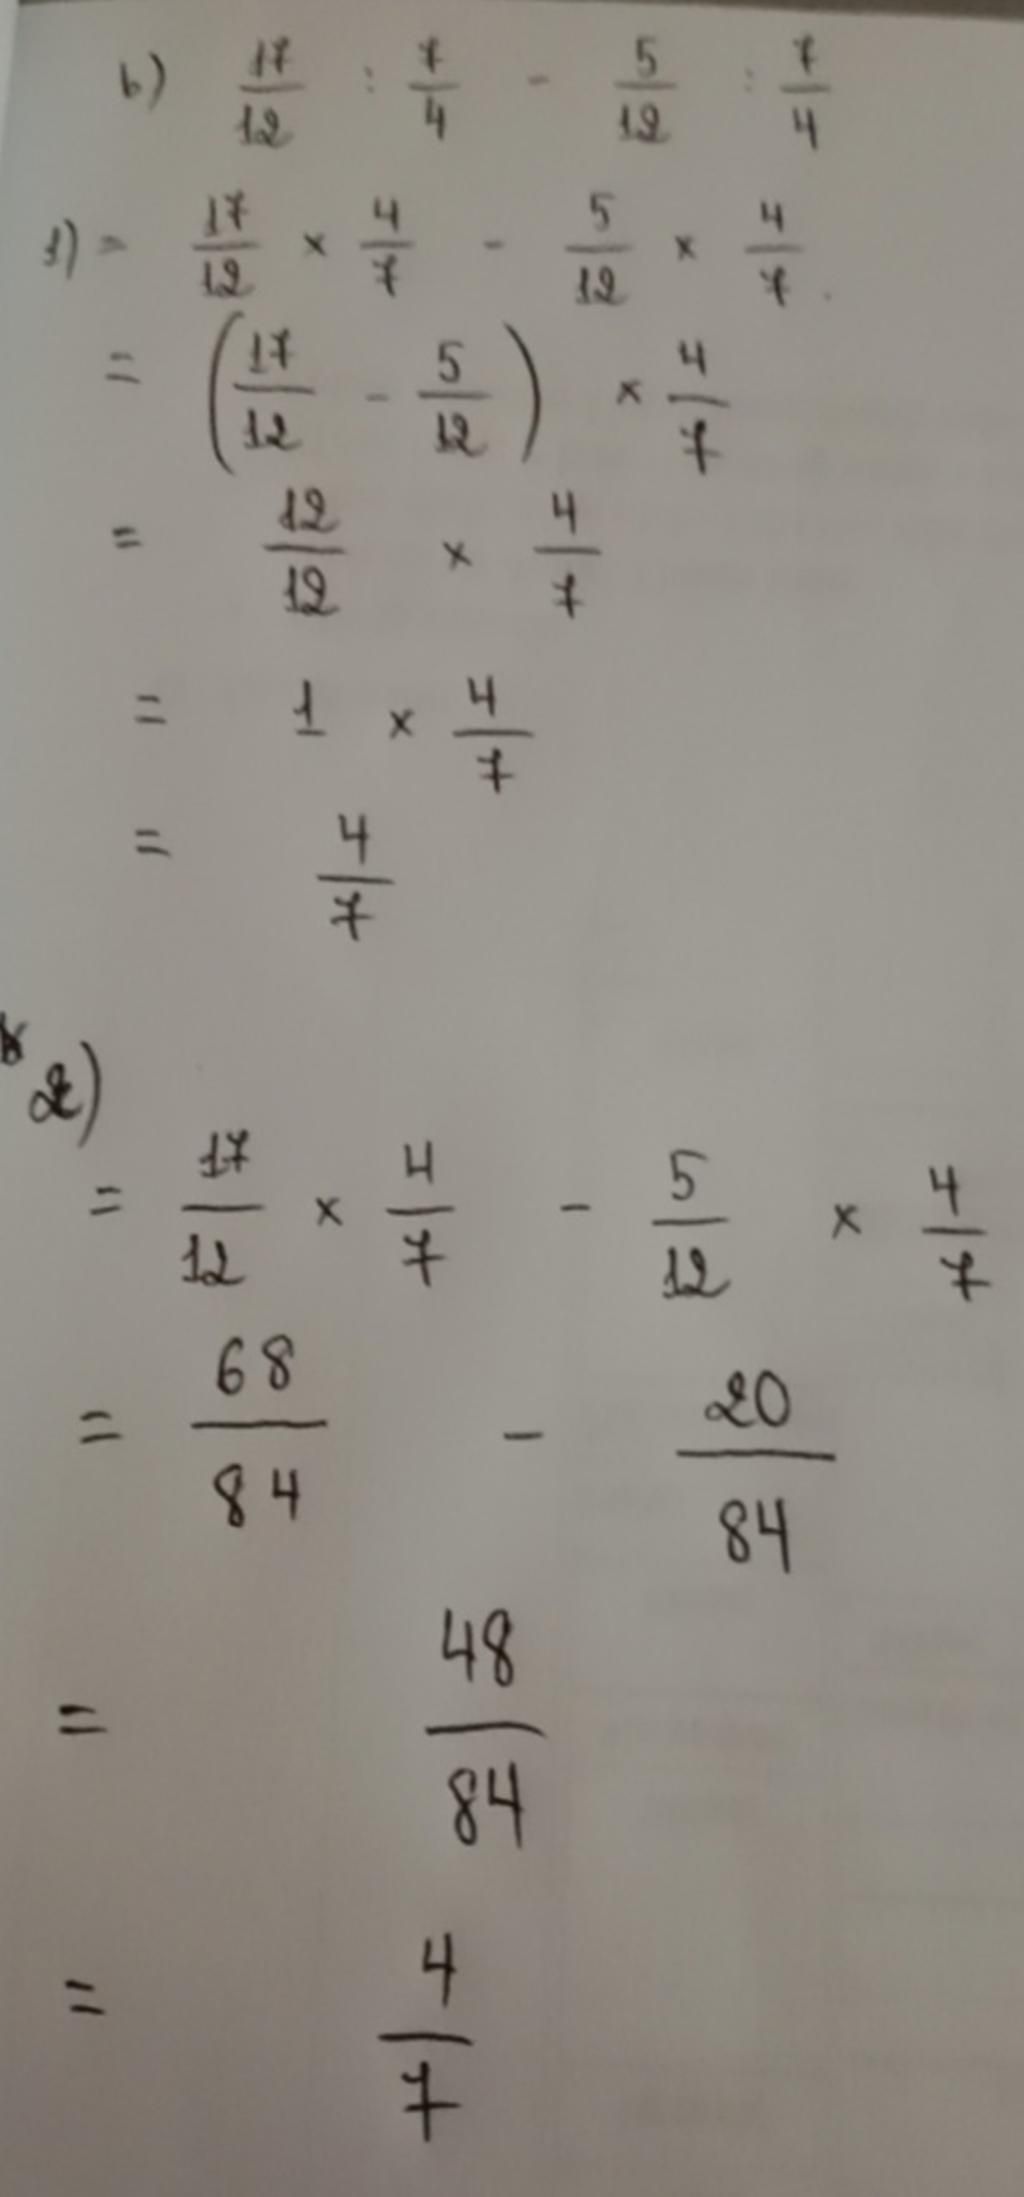 b) 17/12 : 7/4 - 5/12 : 7/4
1) = 17/12 × 4/7 - 5/12 × 4/7.
= (17/12 - 5/12) × 4/7
= 12/12 × 4/7
= 1 × 4/7
= 4/7
2)
= 17/12 × 4/7 - 5/12 × 4/7
= 68/84 - 20/84
= 48/84
= 4/7